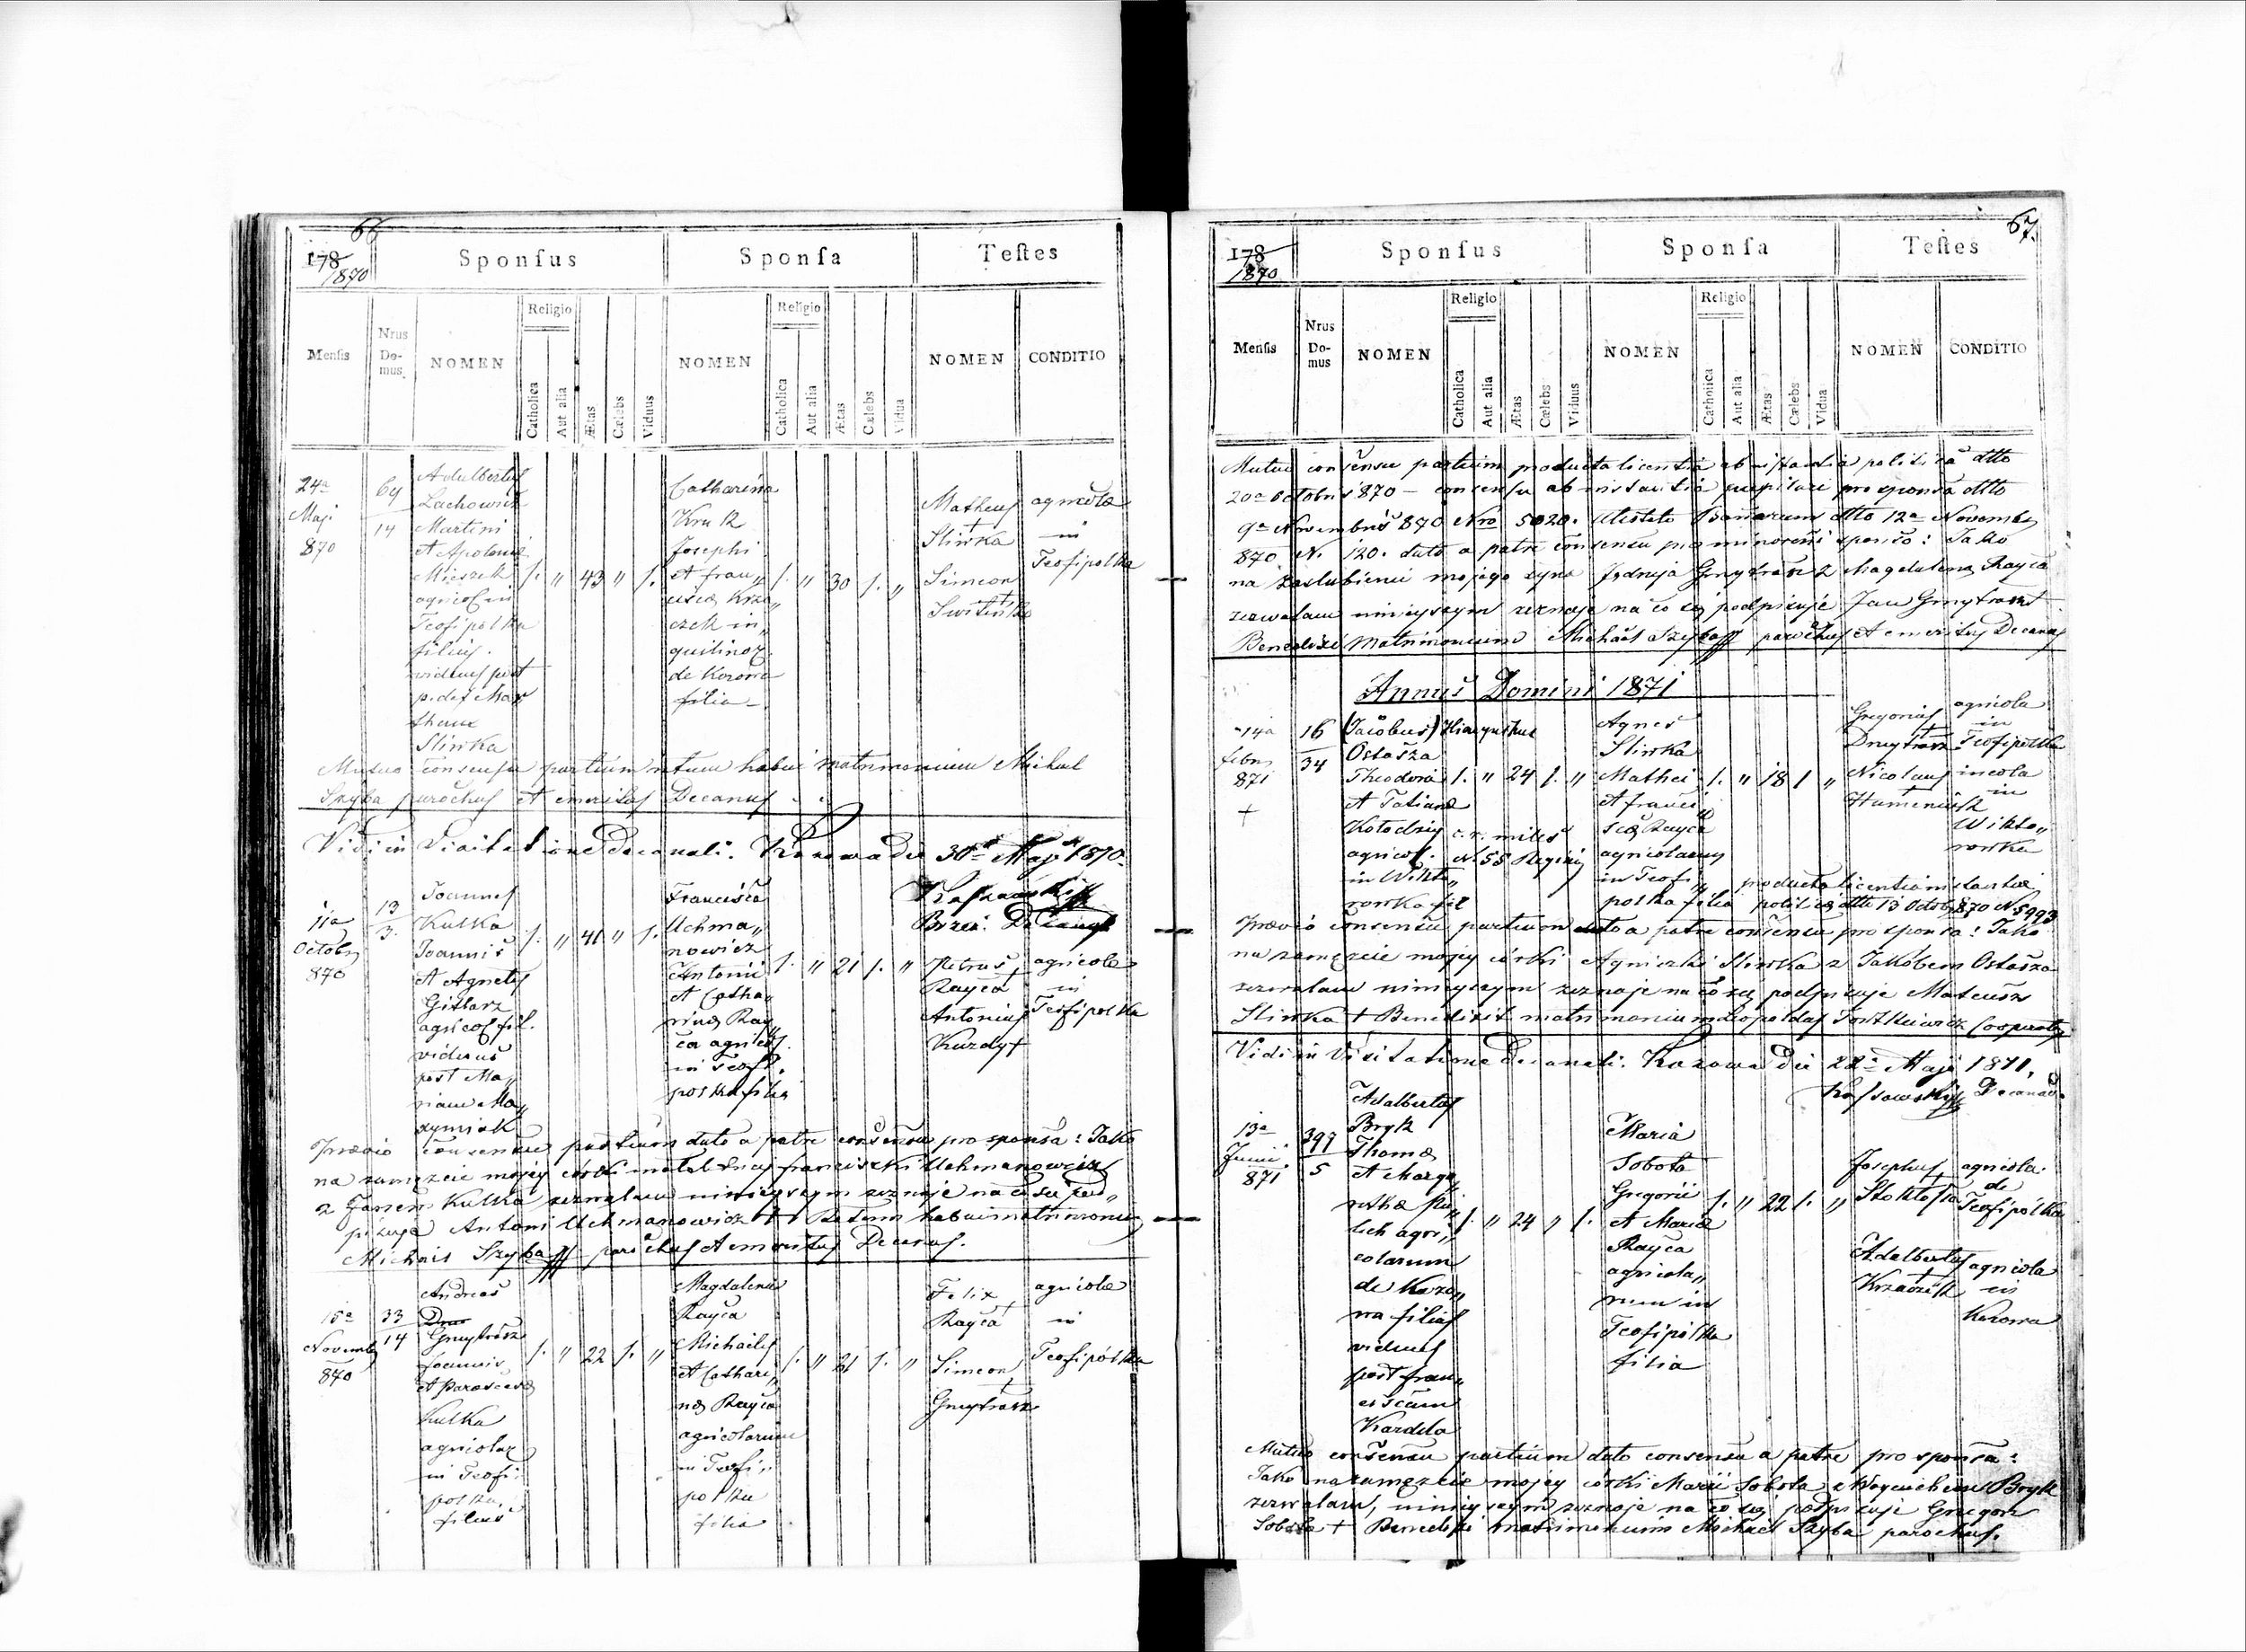 66
178
1870
Sponſus
Sponſa
Teſtes
Menſis
Nrus Do- mus.
NOMEN
Religio
Catholica
Aut alia
Ætas
Cælebs
Viduus
NOMEN
Religio
Catholica
Aut alia
Ætas
Cælebs
Vidua
NOMEN
CONDITIO
24a
Maji
870
64
14
Adalbertus
Lachowicz
Martini
et Apolonia
Mieszek
agricol in
Teofipolka
filius.
viduus post
p. def. Mar
Slivka
1. " 43 " 1.
Catharina
Kruk
Josephi
et fran„
cisca Krza„
czek in„
quilinor.
de Kozowa
filia
1. " 30 1. "
Matheus
+
Sliwka
Simeon
+
agricola
in
Teofipolka
Mutuo consensu partium ratum habui matrimonium Michael
Szyba parochus et emeritus Decanus
Vidi in Visitatione decanali. Kozowa die 30a Maji 1870.
Brzez. Decanus
11a
Octobr
870
13
3.
Joannes
Kulka
Joannis
et Agnetis
Gitlarz
agricol fil.
viduus
post Ma„
riam Ma„
zymiak
1. " 41 " 1.
Francisca
Uchma„
nowicz
Antonii
et Catha„
rina Ray„
ca agricol.
in Teofi.
polka filia
1. " 21 1. "
Petrus
Rayca +
Antonius
Kuzdy +
agricola
in
Teofipolka
Prævio consensu partium dato a patre consensu pro sponsa: Jako
na zamęzcie mojéj córki małoletnéj franciszki Uchmanowicz
z Janem Kulka zezwalam niniejszym zeznaje na co się pod„
pisuje Antoni Uchmanowicz + Ratum habui matrimonium
Michael Szyba parochus et emeritus Decanus.
15a
Novemb
870
33
14
Andreas
Gmytrasz
Joannis
et Parasceva
Kulka
agricolar
in Teofi„
polka,
filius
1. " 22 1. "
Magdalena
Rayca
Michaelis
et Cathari„
na Rayca
agricolarum
in Teofi„
polka
filia
1. " 21 1. "
Felix
Rayca +
Simeon
+
Gmytrasz
agricola
in
Teofipólka
67.
178
1870
Sponſus
Sponſa
Teſtes
Menſis
Nrus Do- mus
NOMEN
Religio
Catholica
Aut alia
Ætas
Cælebs
Viduus
NOMEN
Religio
Catholica
Aut alia
Ætas
Cælebs
Vidua
NOMEN
CONDITIO
Mutuo consensu partium producta licentia ab instantia politica dtto
20a octobris 870 – consensu ab instantia pupilari pro sponsa dtto
9a Novembris 870 Nro 5020. Testete Bannorum dtto 12a Novemb
870 N. 120. dato a patre consensu pro minorenni sponso: Jako
na zaslubienie mojego syna Jędrzeja Gmytrasz z Magdalena Rayca
zezwalam niniejszym zeznaje na co się podpisuje Jan Gmytrasz
Benedixi Matrimonium Michael Szyba parochus et emeritus Decanus
Annus Domini 1871
14a
febru
871
+
16
34
(Jacobus) Hiacynthus
Ostasza
Theodora
et Tatiana
Kołodziy
agricol.
in Wikto„
rowka fil
c. r. miles
N. 55 Reginy
1. " 24 1. "
Agnes
Sliwka
Mathei
et franci„
sca Rayca
agricolarum
in Teofi„
polka filia
1. " 18 1 "
Gregorius
+
Nicolaus
+
Humeniuk
agricola
in
Teofipolka
incola
in
Wikto„
rowka
producta licentia instantiæ
politicæ dtto 13 Octobr 870 N. 5993
Prævio consensu partium dato a patre consensu pro sponsa: Jako
na zamęzcie mojéj córki Agnieszki Sliwka z Jakóbem Ostasza
zezwalam niniejszym zeznaje na co się podpisuje Mateusz
Sliwka + Benedixit matrimonium Leopoldus Cooperator
Vidi in Visitatione decanali. Kozowa die 22a Maji 1871.
Decanus.
13a
Junii
871
399
5
Adalbertus
Bryk
Thoma
et Marga„
retha
agri„
colarum
de Kozo„
wa filius
viduus
post fran„
ciscam
Kardela
1. " 24 " 1.
Maria
Sobota
Gregorii
et Maria
Rayca
agricola„
rum in
Teofipólka
filia
1. " 22 1. "
Josephus
+
Stoklosa
Adalbertus
+
Krzaczek
agricola
de
Teofipólka
agricola
in
Kozowa
Mutuo consensu partium dato consensu a patre pro sponsa:
Jako na zamęzcie mojéj córki Marii Sobota z Woyciechem Bryk
zezwalam, niniejszym zeznaje na co się podpisuje Gregorz
Sobota + Benedixi matrimonium Michael Szyba parochus.